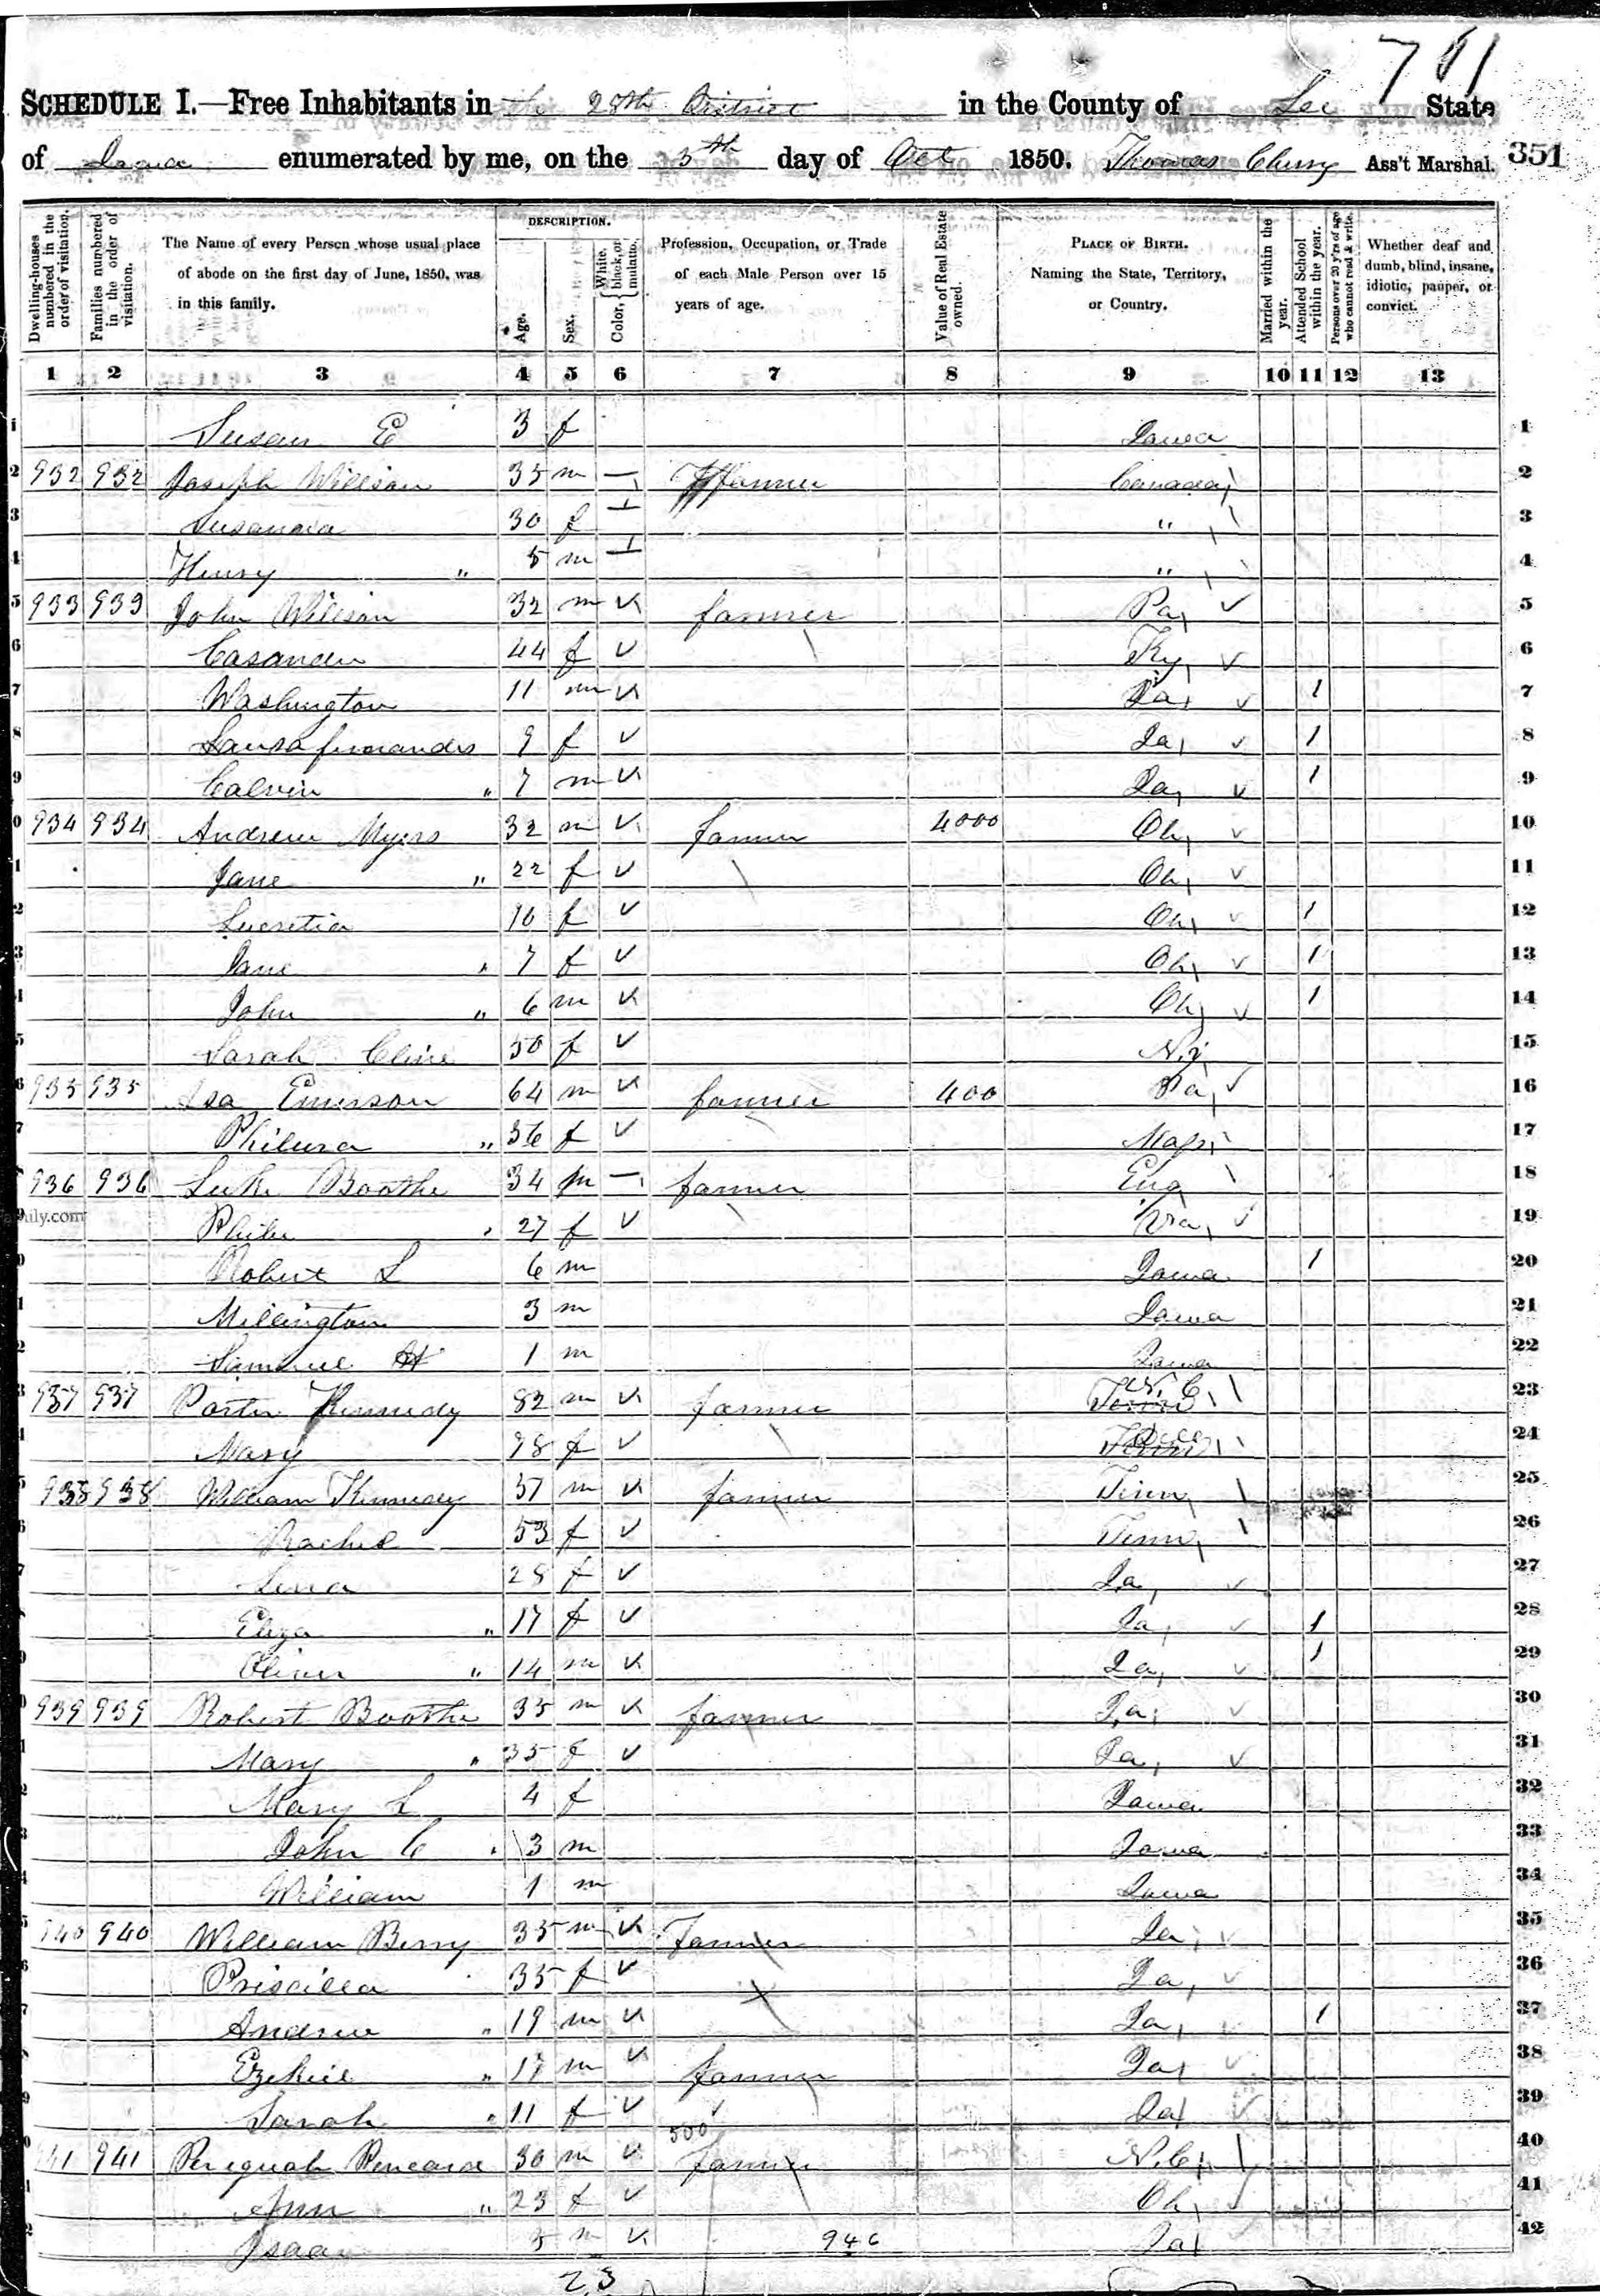 791
SCHEDULE I.—Free Inhabitants in the 28th District in the County of Lee State
of Iowa enumerated by me, on the 5th day of Oct 1850. Thomas Ass't Marshal. 351
Dwelling-houses numbered in the order of visitation.
Families numbered in the order of visitation.
The Name of every Person whose usual place of abode on the first day of June, 1850, was in this family.
DESCRIPTION.
Age.
Sex.
Color, { White, black, or mulatto.
Profession, Occupation, or Trade of each Male Person over 15 years of age.
Value of Real Estate owned.
PLACE OF BIRTH. Naming the State, Territory, or Country.
Married within the year.
Attended School within the year.
Persons over 20 y'rs of age who cannot read & write.
Whether deaf and dumb, blind, insane, idiotic, pauper, or convict.
1 2 3 4 5 6 7 8 9 10 11 12 13
1 Susan E 3 f Iowa 1
2 932 932 Joseph Willson 35 m farmer Canada 2
3 Susanna 30 f " 3
4 Henry " 5 m " 4
5 933 933 John Willson 32 m farmer Pa 5
6 Casander 44 f Ky 6
7 Washington 11 m Ia 1 7
8 9 f Ia 1 8
9 Calvin " 7 m Ia 1 9
934 934 Andrew Myers 32 m farmer 4000 Oh 10
Jane " 22 f Oh 11
Lucretia 10 f Oh 1 12
Jane " 7 f Oh 1 13
John " 6 m Oh 1 14
Sarah Cline 50 f N.j 15
935 935 Asa Emerson 64 m farmer 400 Pa 16
Philura " 56 f Mass 17
936 936 Luke Boothe 34 m farmer Eng 18
ily.com Phebe " 27 f Va 1 19
Robert L 6 m Iowa 1 20
Millington 3 m Iowa 21
Samuel H 1 m Iowa 22
937 937 Porter Kennedy 82 m farmer Tenn N.C. 23
Mary 78 f Tenn 24
938 938 William Kennedy 57 m farmer Tenn 25
Rachel 53 f Tenn 26
28 f Ia 27
Eliza " 17 f Ia 1 28
Oliver " 14 m Ia 1 29
939 939 Robert Boothe 35 m farmer Ia 30
Mary " 35 f Ia 31
Mary L 4 f Iowa 32
John C " 3 m Iowa 33
William 1 m Iowa 34
940 940 William Berry 35 m Farmer Ia 35
Priscilla 35 f Ia 36
Andrew " 19 m Ia 1 37
Ezekiel " 17 m farmer Ia 38
Sarah " 11 f Ia 39
500
41 941 30 m farmer N.C. 40
Ann " 23 f Oh 41
Isaac 5 m 946 Ia 42
23